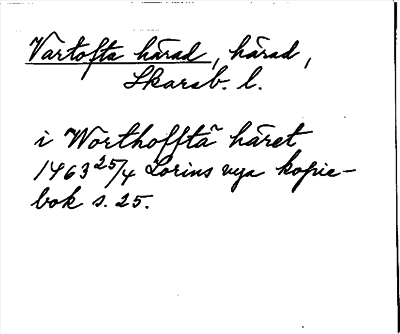 Vartofta härad, härad,
Skarab. l.
i Worthofftã häret
1463 25/4 Lorins nya kopie-
bok s. 25.